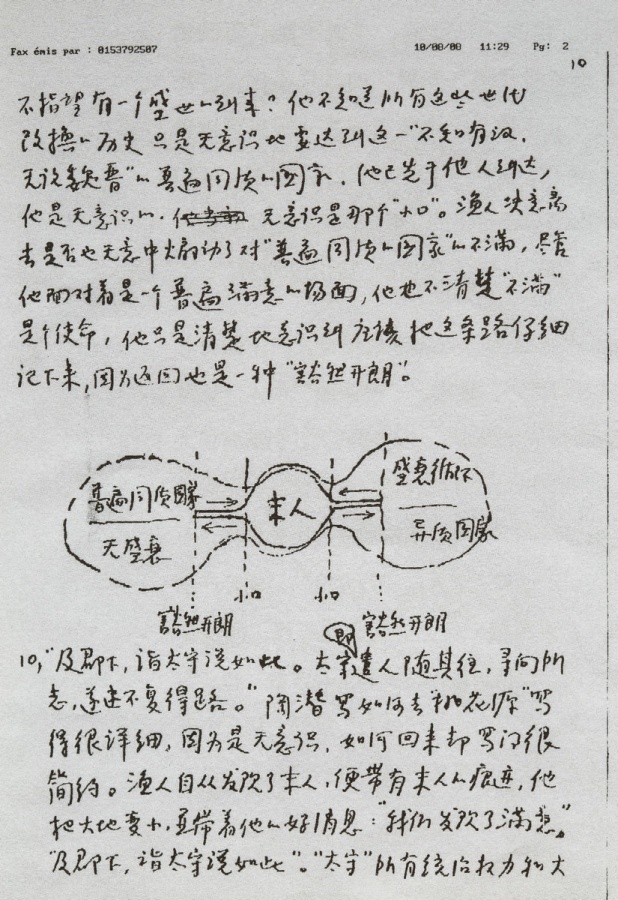 Fax émis par : 0153792507 10/08/08 11:29 Pg: 2
10
不指望有一个盛世的到来？他不知道所有这些世代
改换的历史只是无意识地要达到这一"不知有汉，
无论魏晋"的普遍同质的国家，他已先于他人到达，
他是无意识的。无意识是那个"小口"。渔人决意离
去是否也无意中煽动了对"普遍同质的国家"的不满，尽管
他面对着是一个普遍满意的场面，他也不清楚"不满"
是个使命，他只是清楚地意识到应该把这条路仔细
记下来，因为返回也是一种"豁然开朗"。
普遍同质国家
无盛衰
末人
盛衰循环
异质国家
小口 小口
豁然开朗 豁然开朗
10，"及郡下，诣太守说如此。太守即遣人随其往，寻向所
志，遂迷不复得路。"陶潜写如何去"桃花源"写
得很详细，因为是无意识，如何回来却写得很
简约。渔人自从发现了末人，便带有末人的痕迹，他
把大地变小，并带着他的好消息："我们发现了满意。"
"及郡下，诣太守说如此"。"太守"所有统治权力和大